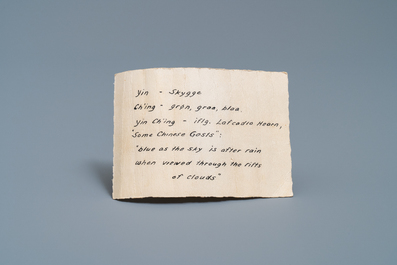 Yin - Skygge
Ch'ing - grøn, graa, blaa.
Yin Ch'ing - iflg. Lafcadio Hearn,
"Some Chinese Gosts":
"blue as the sky is after rain
when viewed through the rifts
of clouds"